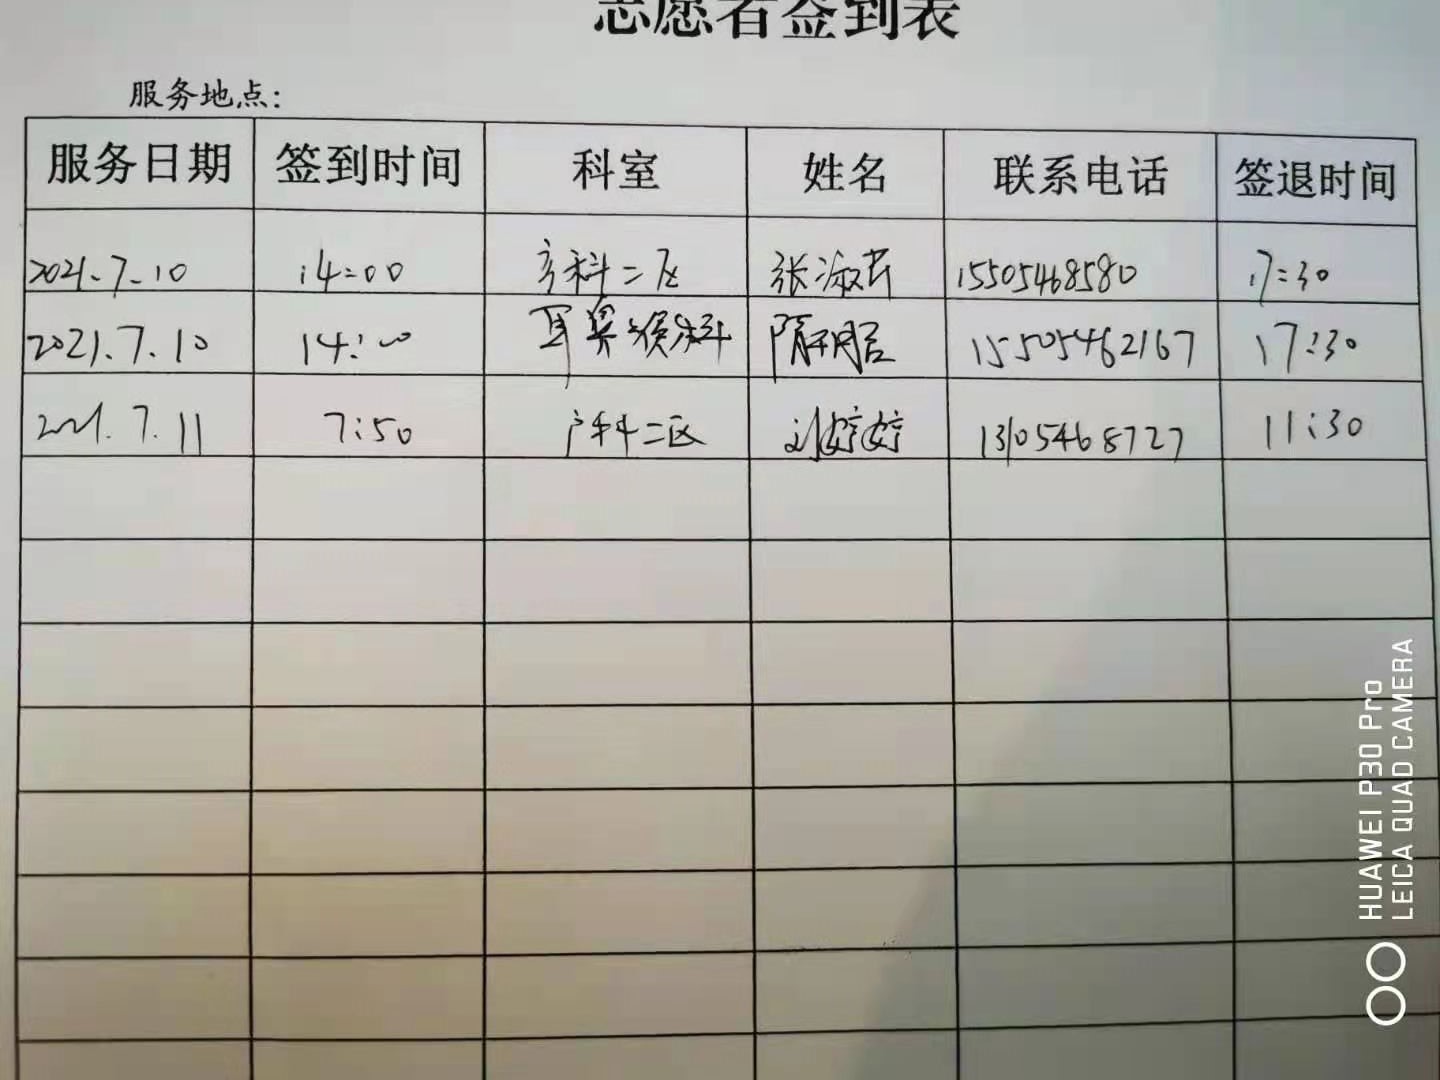 志愿者签到表
服务地点：
服务日期 签到时间 科室 姓名 联系电话 签退时间
2021.7.10 14:00 产科二区 张淑芸 15505468580 17:30
2021.7.10 14:00 耳鼻喉科 隋 15505462167 17:30
2021.7.11 7:50 产科二区 刘婷婷 13105468727 11:30
HUAWEI P30 Pro
LEICA QUAD CAMERA